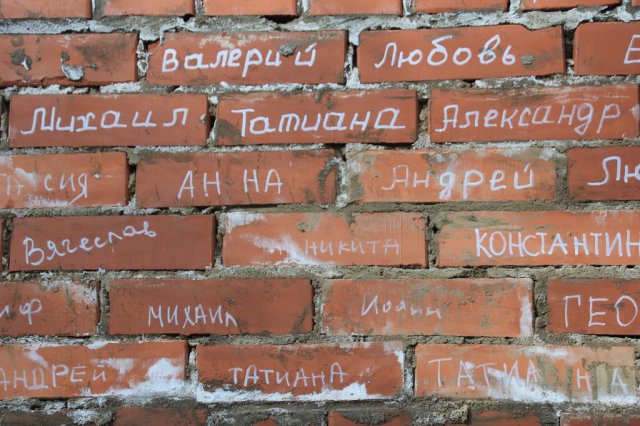 Валерий Любовь
Михаил Татиана Александр
АННА Андрей
Вячеслав НИКИТА КОНСТАНТИН
МИХАИЛ Иоанн
АНДРЕЙ ТАТИАНА ТАТИАНА